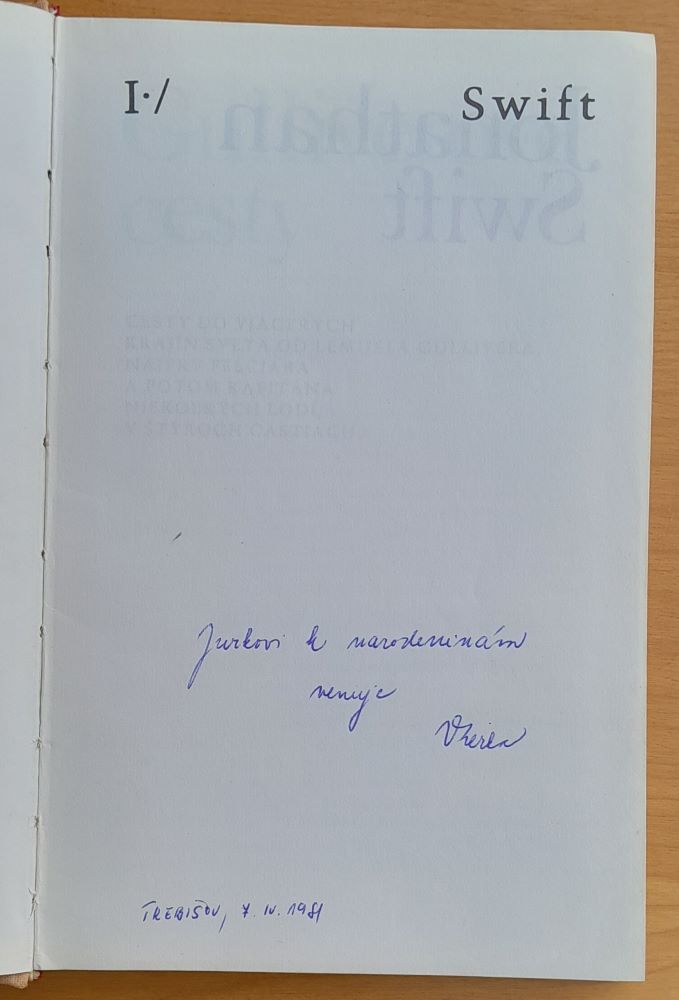 I·/ Swift
CESTY DO VIACERÝCH
KRAJÍN SVETA OD LEMUELA GULLIVERA,
NAJPRV FELČIARA
A POTOM KAPITÁNA
NIEKOĽKÝCH LODÍ
V ŠTYROCH ČASTIACH
Jonathan
Swift
cesty
Jurkovi k narodeninám
venuje
TREBIŠOV, 7. IV. 1981